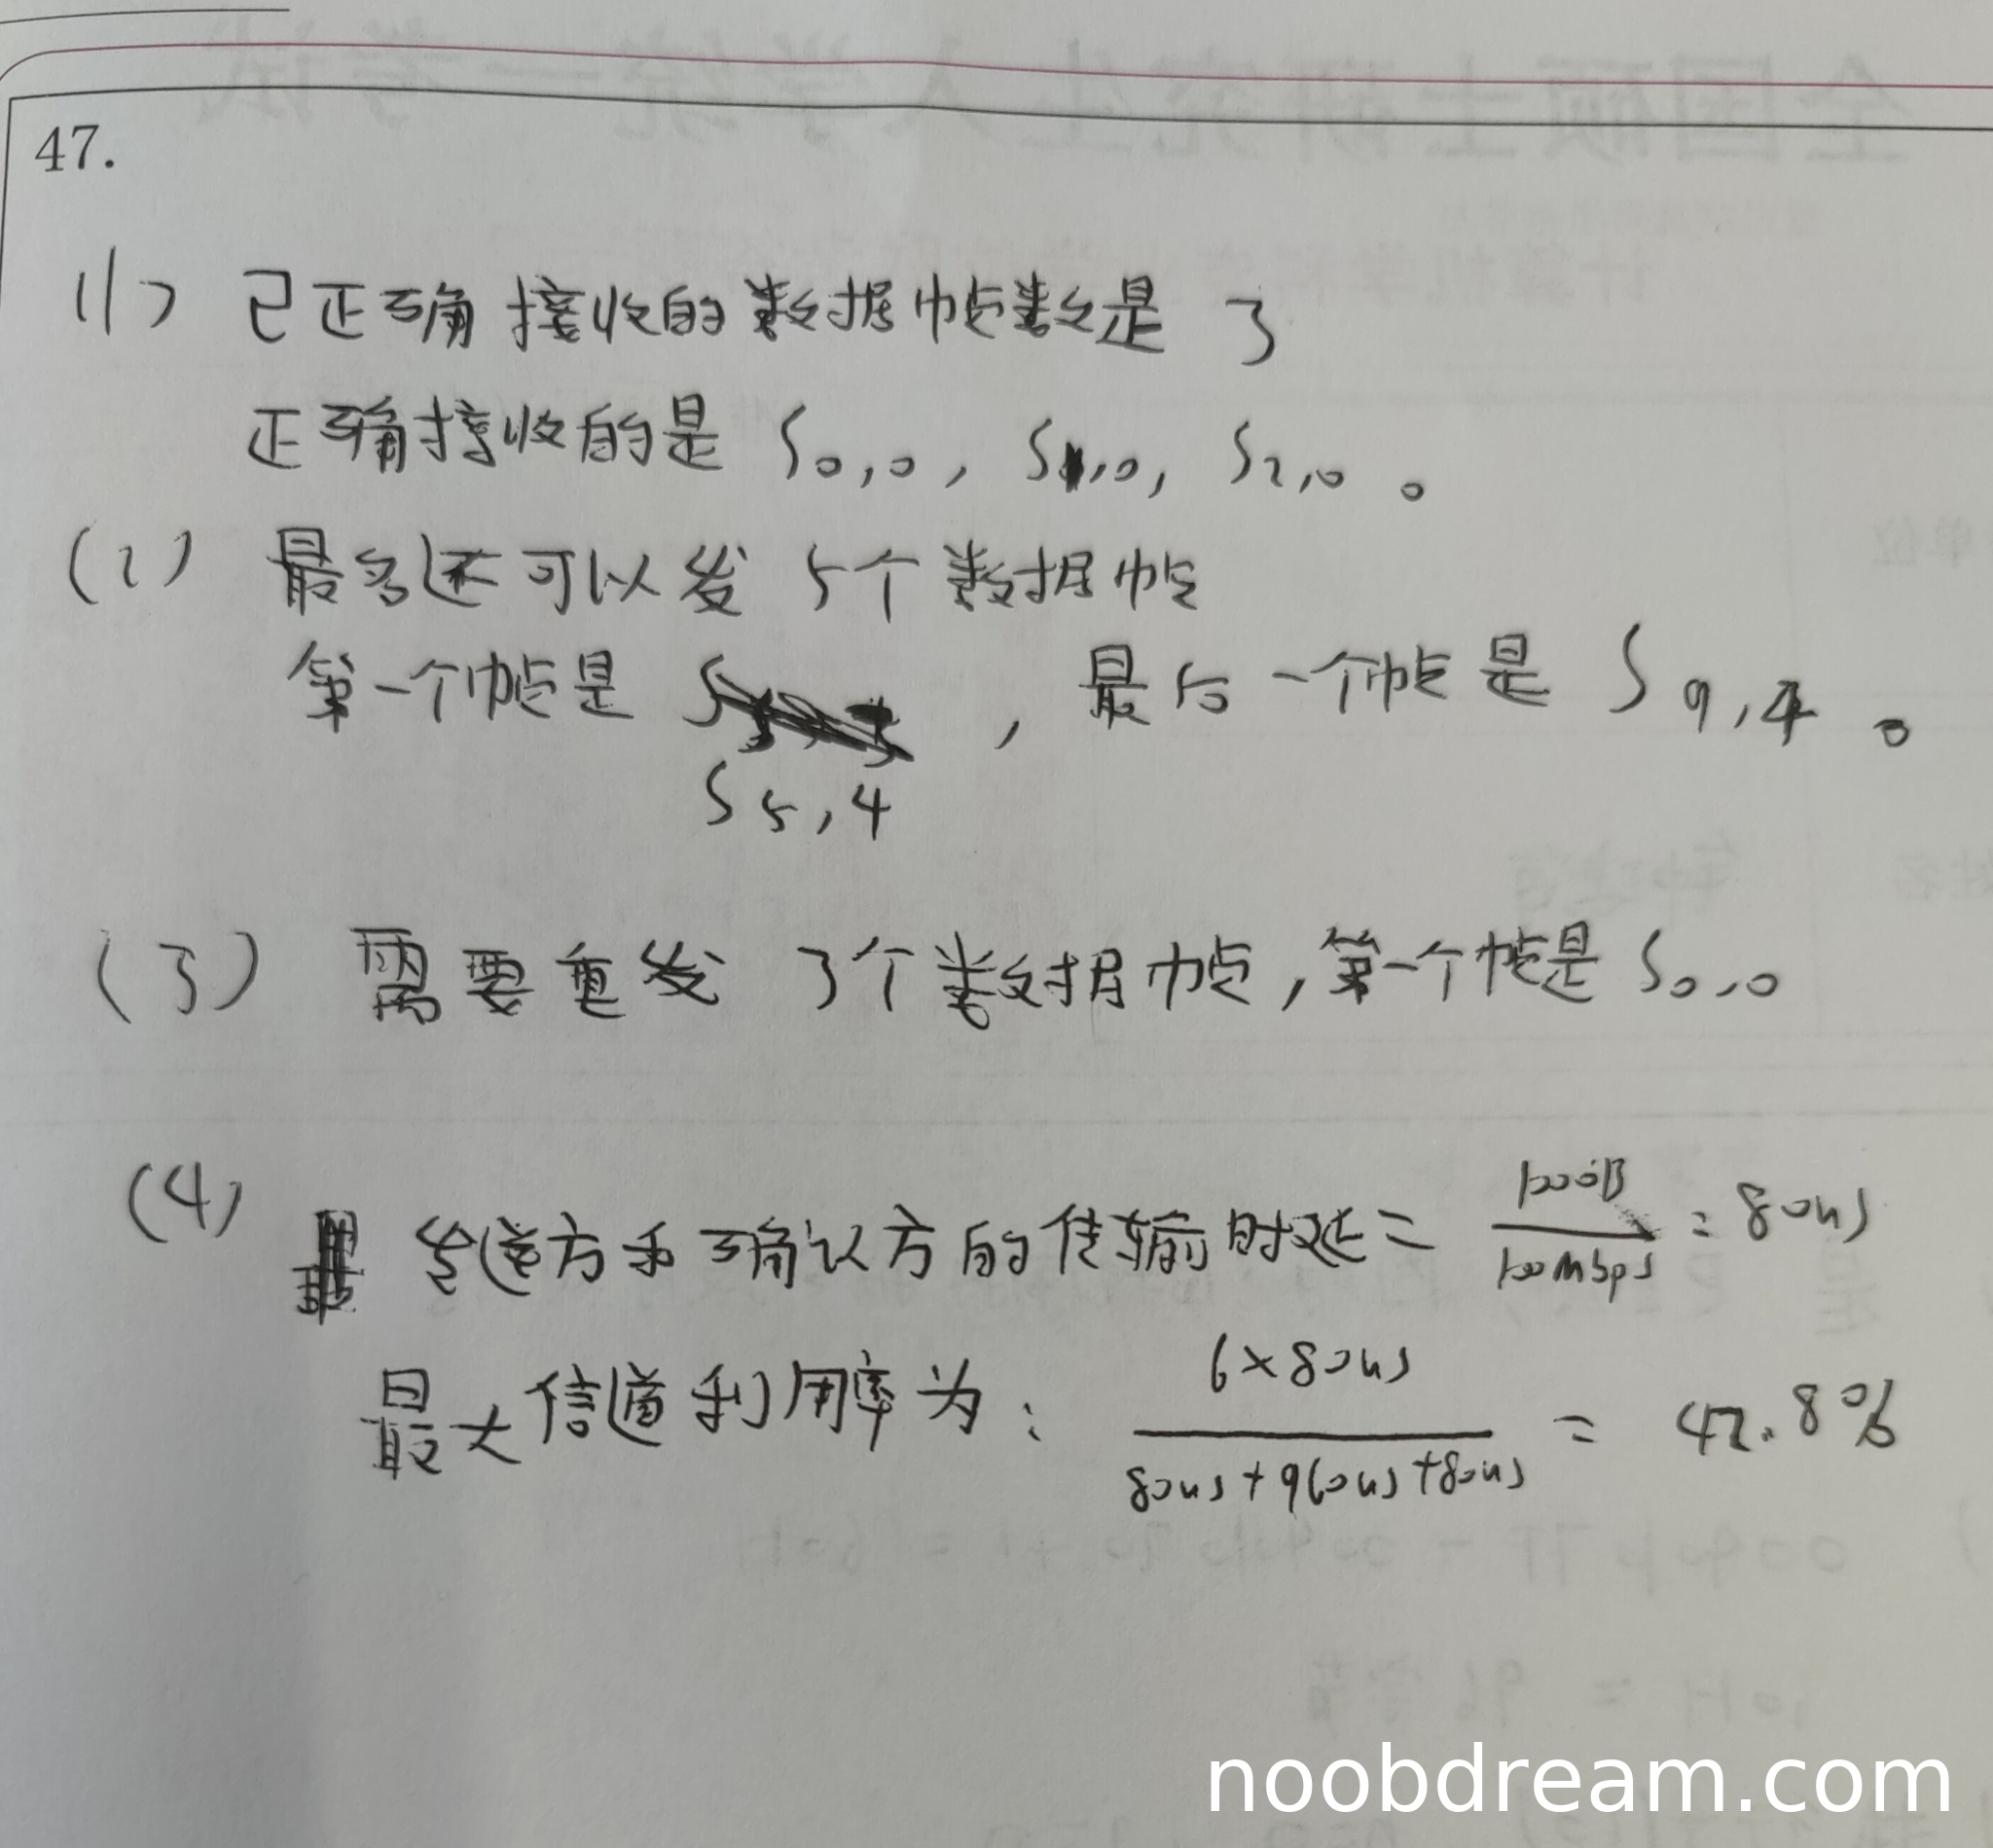 47.
(1) 已正确接收的数据帧数是 3
正确接收的是 S0,0, S1,0, S2,0。
(2) 最多还可以发 5个数据帧
第一个帧是 , 最后一个帧是 S9,4。
S5,4
(3) 需要重发 3个数据帧,第一个帧是 S0,0
(4) 发送方和确认方的传输时延 = 1000B/100Mbps = 80us
最大信道利用率为: 6×80us/80us+960us+80us = 42.8%
noobdream.com